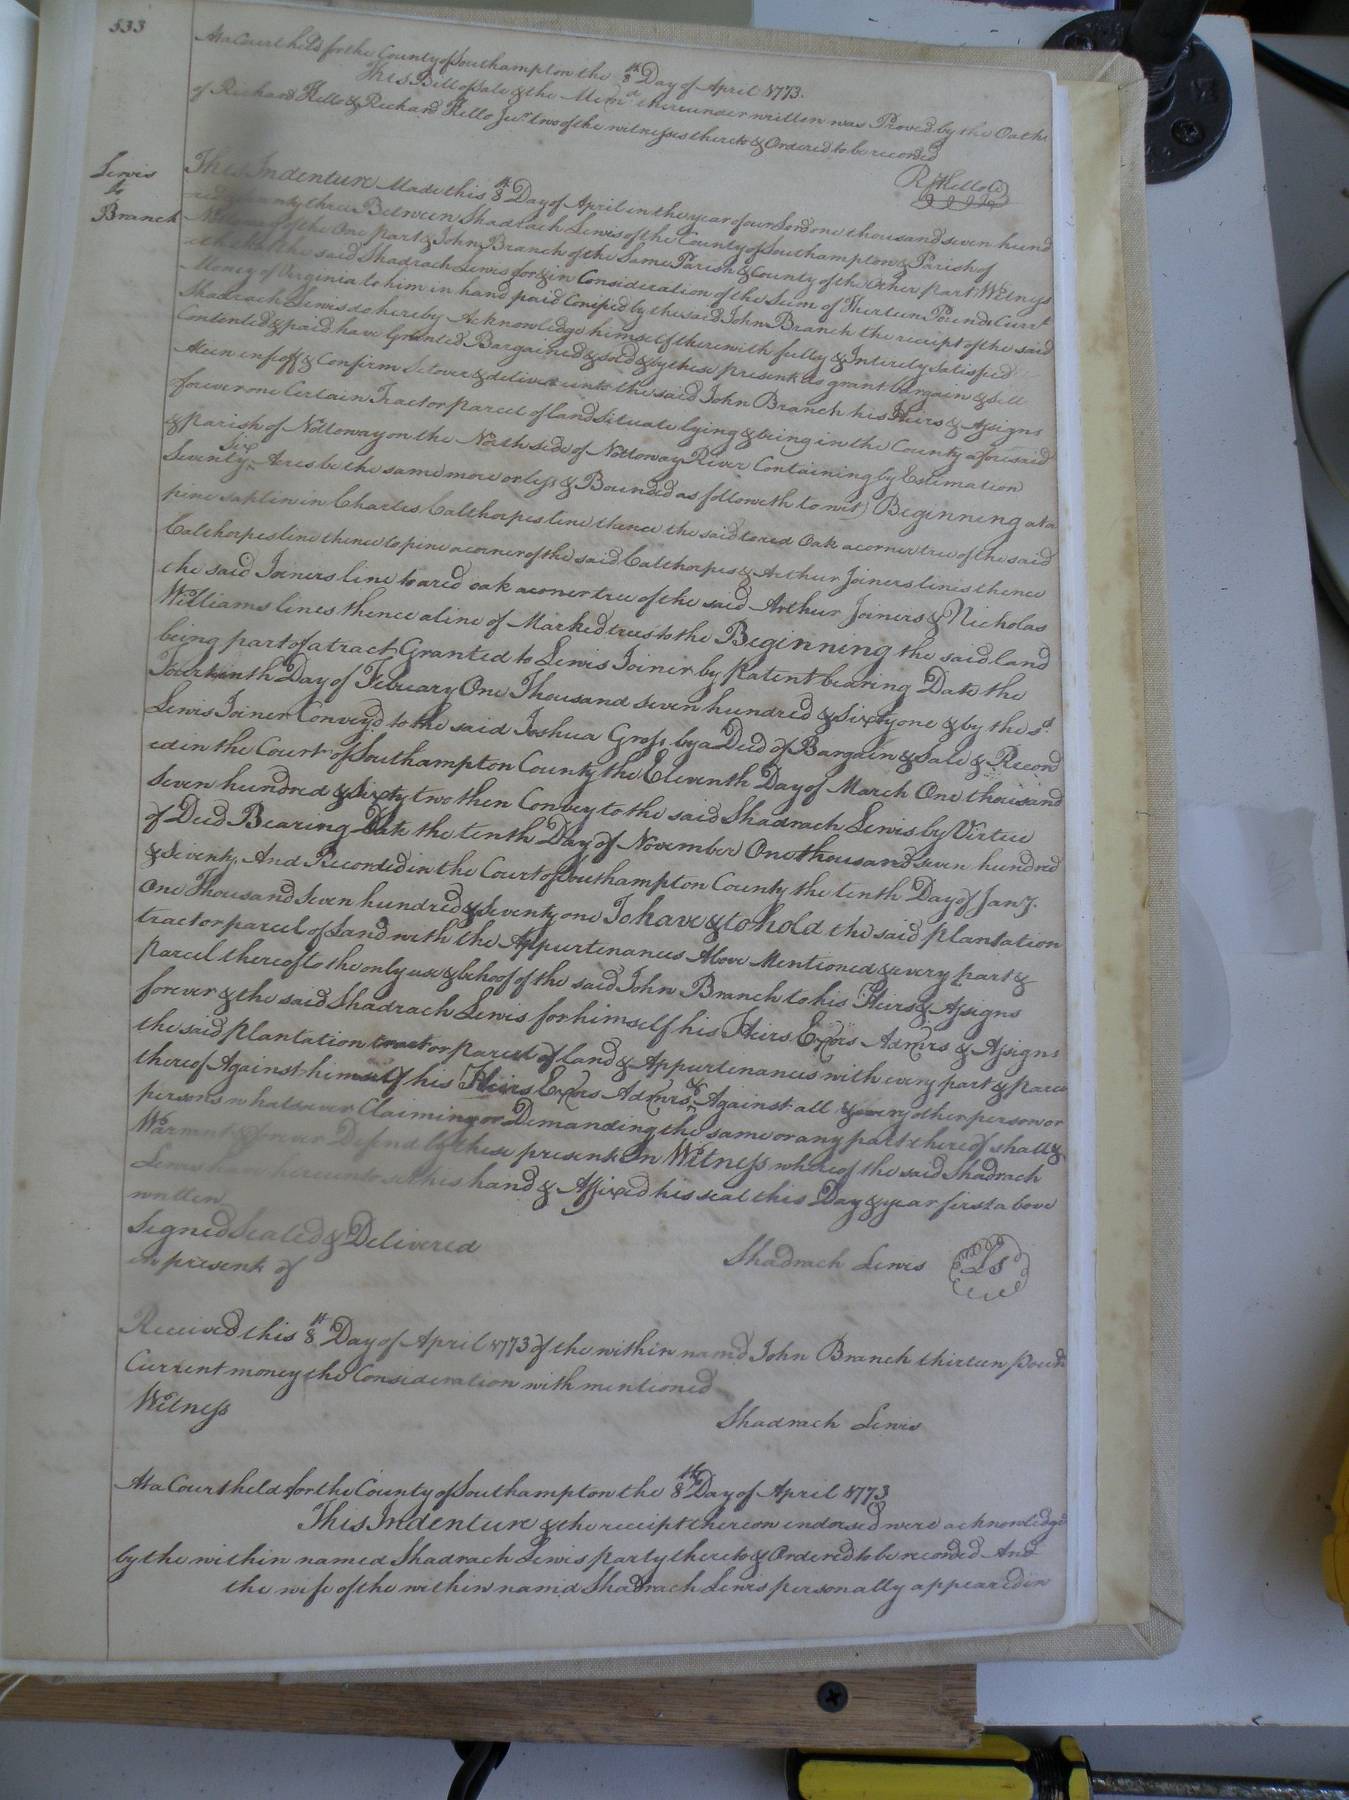 533
At a Court held for the County of Southampton the 8th Day of April 1773.
This Bill of Sale & the Memo thereunder written was Proved by the Oaths
of Richard Kello & Richard Kello Junr two of the witnesses thereto & Ordered to be recorded
Rd Kello CC
Lewis
to
Branch
This Indenture Made this 8th Day of April in the year of our Lord one thousand seven hund
red & seventy three Between Shadrach Lewis of the County of Southampton & Parish of
Nottoway of the One part & John Branch of the Same Parish & County of the Other part Witness
eth that the said Shadrach Lewis for & in Consideration of the Sum of Thirteen Pounds Currt
Money of Virginia to him in hand paid by the said John Branch the receipt of the said
Shadrach Lewis do hereby Acknowledge himself therewith fully & Intirely satisfied
Contented & paid have Granted Bargained & sold & by these presents do grant bargain & sell
Alien enfeoff & Confirm Setover & deliver unto the said John Branch his Heirs & Assigns
forever one Certain Tract or parcel of land Situate lying & being in the County aforesaid
& parish of Nottoway on the North side of Nottoway River Containing by Estimation
Seventy Six Acres be the same more or less & Bounded as followeth to wit) Beginning at a
pine saplin in Charles Calthorpes line thence the said to red Oak a corner tree of the said
Calthorpes line thence to pine a corner of the said Calthorpes & Arthur Joiners lines thence
the said Joiners line to a red oak a coner tree of the said Arthur Joiners & Nicholas
Williams lines thence a line of Marked trees to the Beginning the said land
being part of a tract Granted to Lewis Joiner by Patent bearing Date the
Fourteenth Day of Febuary One Thousand seven hundred & Sixty one & by the sd
Lewis Joiner Convey'd to the said Joshua Gross by a Deed of Bargain & Sale & Record
ed in the Court of Southampton County the Eleventh Day of March One thousand
Seven hundred & Sixty two then Convey to the said Shadrach Lewis by Virtue
of Deed Bearing Date the tenth Day of November One thousand seven hundred
& Seventy, And Recorded in the Court of Southampton County the tenth Day of Jany.
One Thousand Seven hundred & Seventy one To have & to hold the said plantation
tract or parcel of Land with the Appurtenances Above Mentioned & every part &
Parcel thereof to the only use & behoof of the said John Branch to his Heirs & Assigns
forever & the said Shadrach Lewis for himself his Heirs Exors Admrs & Assigns
the said plantation tract or parcel of land & Appurtenances with every part & parce
thereof Against himself his Heirs Exors Admrs & Against all & every other person or
persons whatsoever Claiming or Demanding the same or any part thereof shall &
Warrent & forever Defend by these presents In Witness whereof the said Shadrach
Lewis have hereunto set his hand & Affixed his seal this Day & year first above
written
Signed Sealed & Delivered
in presents of
Shadrach Lewis Ls
Received this 8th Day of April 1773 of the within named John Branch thirteen pounds
Current money the Consideration with mentioned
Witness
Shadrach Lewis
At a Court held for the County of Southampton the 8th Day of April 1773
This Indenture & the receipt thereon endorsed were acknowledged
by the within named Shadrach Lewis party thereto & Ordered to be recorded And
the wife of the within named Shadrach Lewis personally appeared in